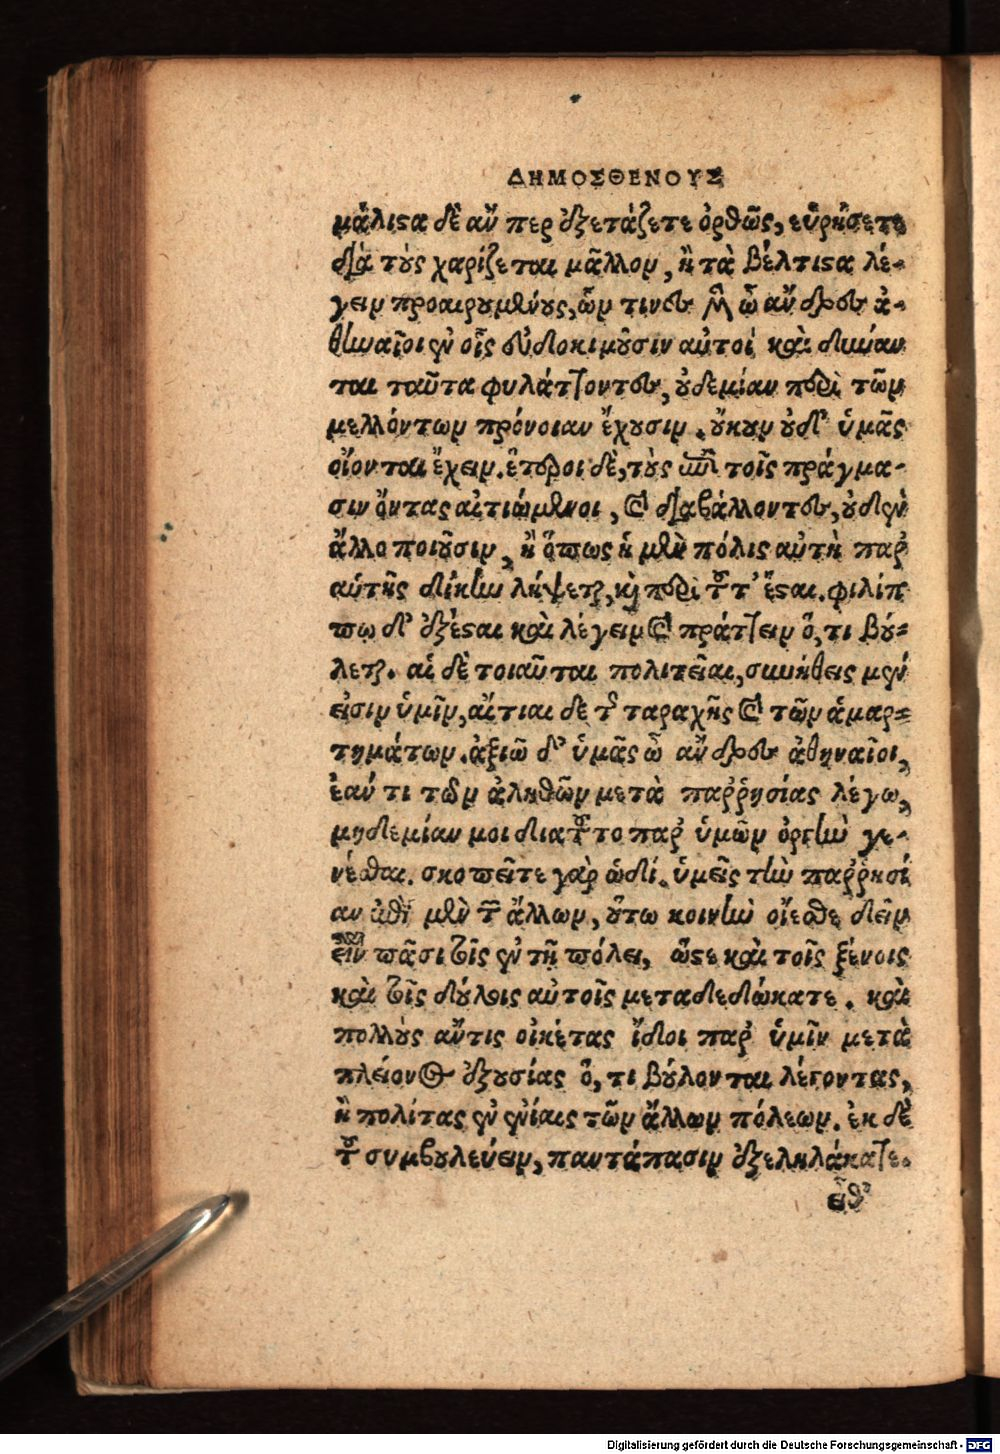 ΔΗΜΟΣΘΕΝΟΥΣ
μάλιστα δὲ ἄν περ ἐξετάζετε ὀρθῶς, εὑρήσετε
διὰ τοὺς χαρίζεται μᾶλλον, ἢ τὰ βέλτιστα λέ-
γειν προαιρουμένους, ὧν τινες μὲν ὦ ἄνδρες ἀ-
θηναῖοι ἐν οἷς εὐδοκιμοῦσιν αὐτοὶ καὶ δύναν
ται ταῦτα φυλάττοντες, οὐδεμίαν περὶ τῶν
μελλόντων πρόνοιαν ἔχουσιν. οὐκοῦν οὐδ' ὑμᾶς
οἴονται ἔχειν. ἕτεροι δὲ, τοὺς ἐπὶ τοῖς πράγμα-
σιν ὄντας αἰτιώμενοι, καὶ διαβάλλοντες, οὐδὲν
ἄλλο ποιοῦσιν, ἢ ὅπως ἡ μὲν πόλις αὐτὴ παρ
αὑτῆς δίκην λήψεται, καὶ περὶ τοῦτ' ἔσται. φιλίπ
πῳ δ' ἐξέσται καὶ λέγειν καὶ πράττειν ὅ, τι βού-
λεται. αἱ δὲ τοιαῦται πολιτεῖαι, συνήθεις μέν
εἰσιν ὑμῖν, αἴτιαι δὲ τῆς ταραχῆς καὶ τῶν ἁμαρ-
τημάτων. ἀξιῶ δ' ὑμᾶς ὦ ἄνδρες ἀθηναῖοι,
ἐάν τι τῶν ἀληθῶν μετὰ παῤῥησίας λέγω,
μηδεμίαν μοι διατοῦτο παρ ὑμῶν ὀργὴν γε-
νέσθαι. σκοπεῖτε γὰρ ὡδί. ὑμεῖς τὴν παῤῥησί
αν ἐπὶ μὲν τῶν ἄλλων, οὕτω κοινὴν οἴεσθε δεῖν
εἶναι πᾶσι τοῖς ἐν τῇ πόλει, ὥστε καὶ τοῖς ξένοις
καὶ τοῖς δούλοις αὐτοῖς μεταδεδώκατε. καὶ
πολλοὺς ἄν τις οἰκέτας ἴδοι παρ ὑμῖν μετὰ
πλείονος ἐξουσίας ὅ, τι βούλονται λέγοντας,
ἢ πολίτας ἐν ἐνίαις τῶν ἄλλων πόλεων. ἐκ δὲ
τοῦ συμβουλεύειν, παντάπασιν ἐξεληλάκατε.
εἶθ'
Digitalisierung gefördert durch die Deutsche Forschungsgemeinschaft - DFG